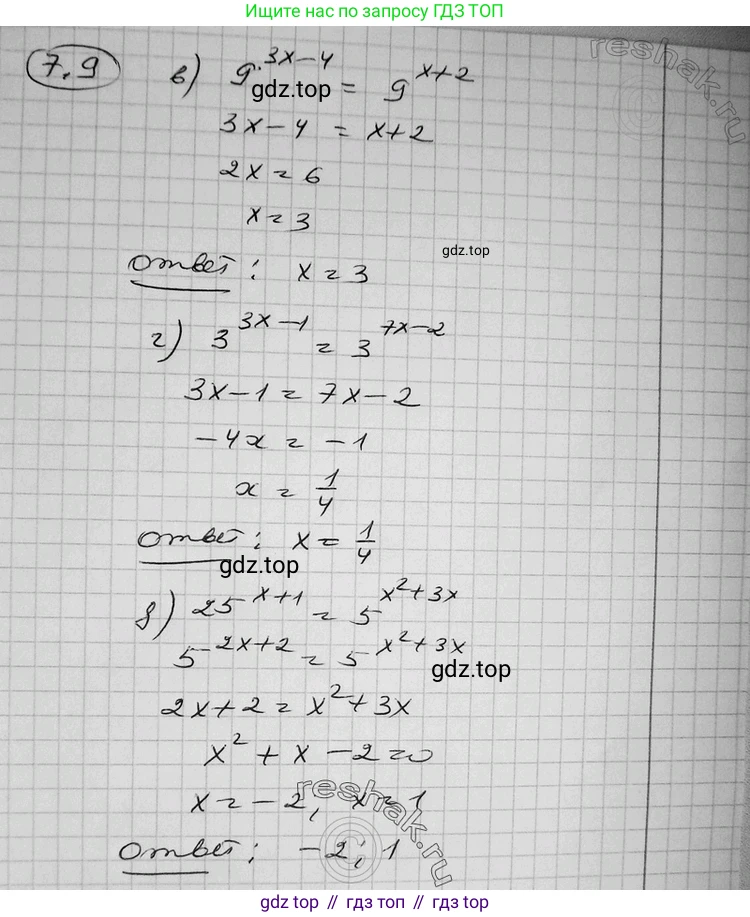 Ищите нас по запросу ГДЗ ТОП
reshak.ru
7.9 в) 9^{3x-4} = 9^{x+2}
gdz.top
3x-4 = x+2
2x = 6
x = 3
gdz.top
ответ: x = 3
г) 3^{3x-1} = 3^{7x-2}
3x-1 = 7x-2
-4x = -1
x = 1/4
ответ: x = 1/4
gdz.top
д) 25^{x+1} = 5^{x²+3x}
5^{2x+2} = 5^{x²+3x}
gdz.top
2x+2 = x²+3x
x²+x-2=0
x = -2, x = 1
reshak.ru
ответ: -2; 1
гдз топ // гдз топ // gdz top